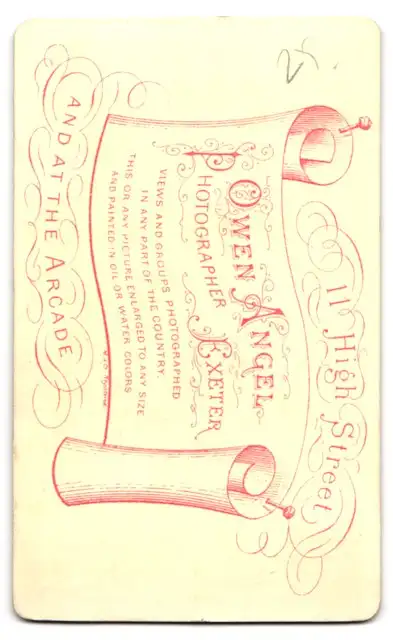 25.
11 High Street
OWEN ANGEL
PHOTOGRAPHER EXETER
VIEWS AND GROUPS PHOTOGRAPHED
IN ANY PART OF THE COUNTRY.
THIS OR ANY PICTURE ENLARGED TO ANY SIZE
AND PAINTED IN OIL OR WATER COLORS
AND AT THE ARCADE